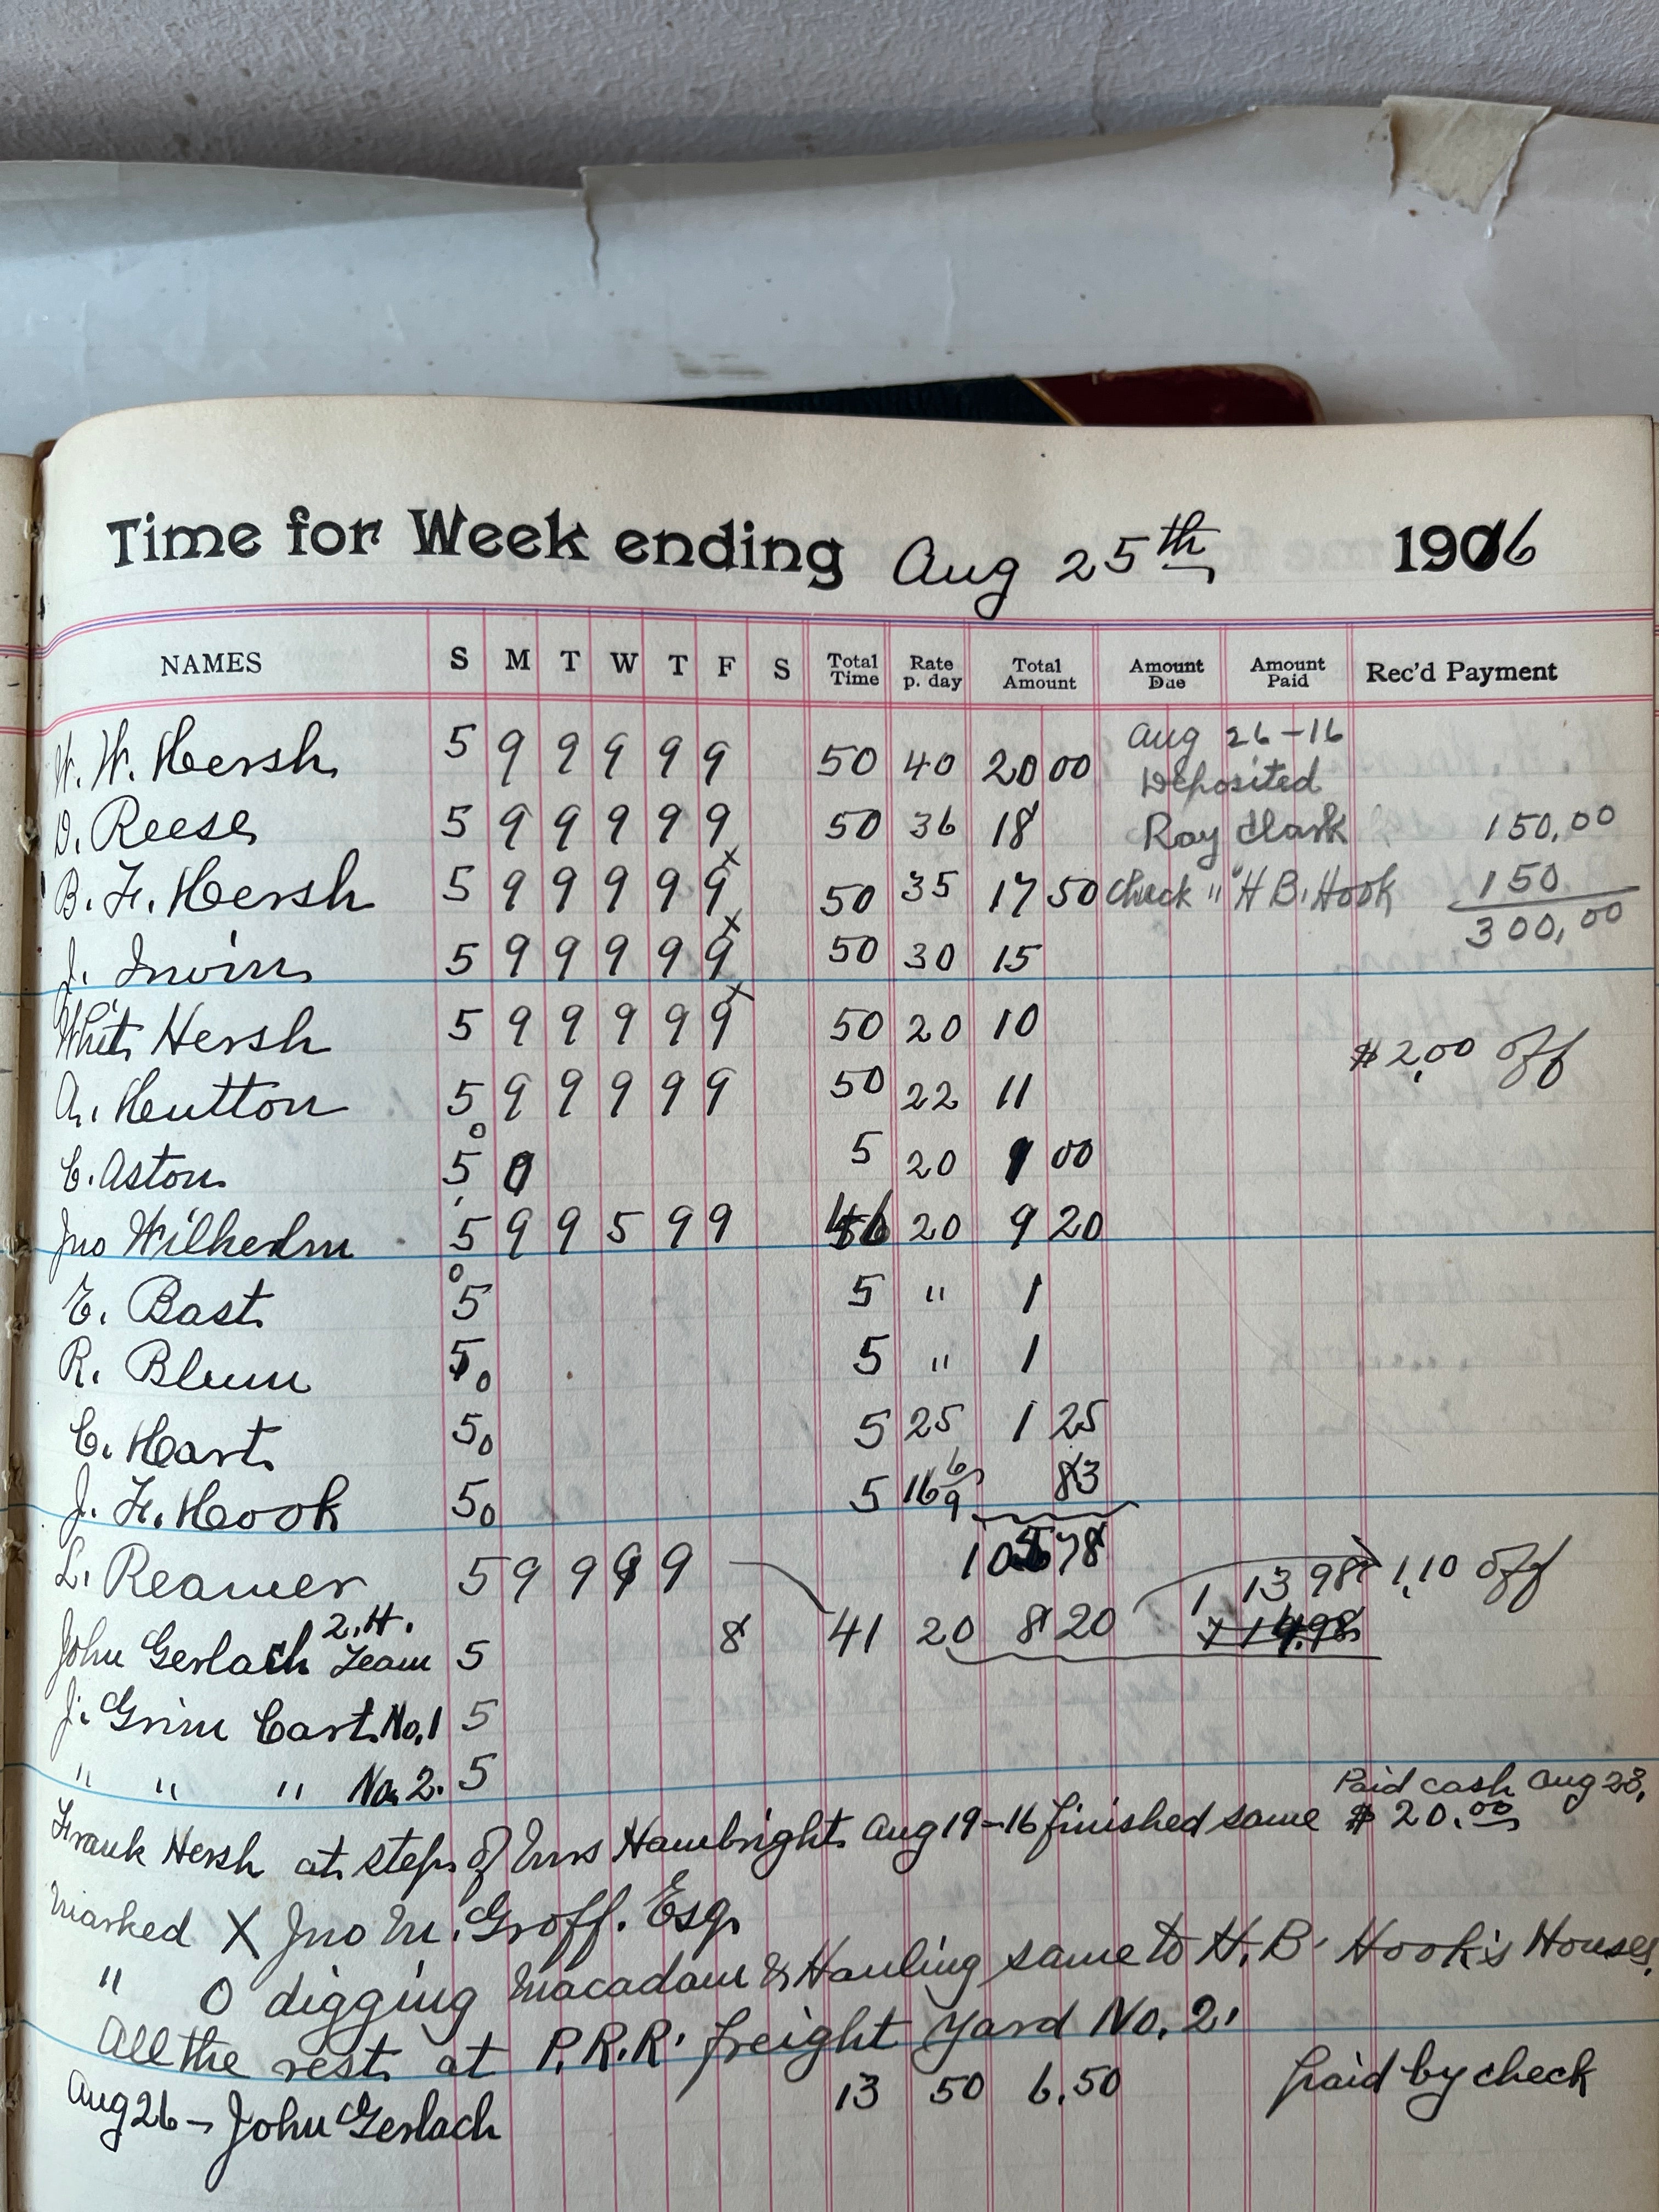 Time for Week ending Aug 25th 1916
NAMES S M T W T F S Total Time Rate p. day Total Amount Amount Due Amount Paid Rec'd Payment
W. W. Hersh 5 9 9 9 9 9 50 40 20 00 Aug 26-16
Deposited
D. Reese 5 9 9 9 9 9 50 36 18 Ray Clark 150.00
B. F. Hersh 5 9 9 9 9 9 x 50 35 17 50 Check " H B. Hook 150
300.00
J. Irwin 5 9 9 9 9 9 x 50 30 15
Whit Hersh 5 9 9 9 9 9 x 50 20 10 $2.00 off
A. Hutton 5 9 9 9 9 9 50 22 11
C. Aston 5 0 0 5 20 1 00
Jno Wilhelm 5 9 9 5 9 9 46 20 9 20
E. Bast 5 0 5 " 1
R. Blum 5 0 5 " 1
C. Heart 5 0 5 25 1 25
J. F. Hook 5 0 5 16 6/9 83
105 78
L. Reamer 5 9 9 9 9 41 20 8 20 113 98 1.10 off
114.98
John Gerlach 2.H. Team 5 8
J. Grim Cart No. 1 5
" " " No. 2. 5
Frank Hersh at steps of Mrs Hambright Aug 19-16 finished same Paid cash Aug 28, $20.00
Marked X Jno M. Groff. Esq.
" O digging Macadam & Hauling same to H. B. Hook's Houses.
All the rest at P.R.R. freight Yard No. 2.
Aug 26 - John Gerlach 13 50 6.50 paid by check